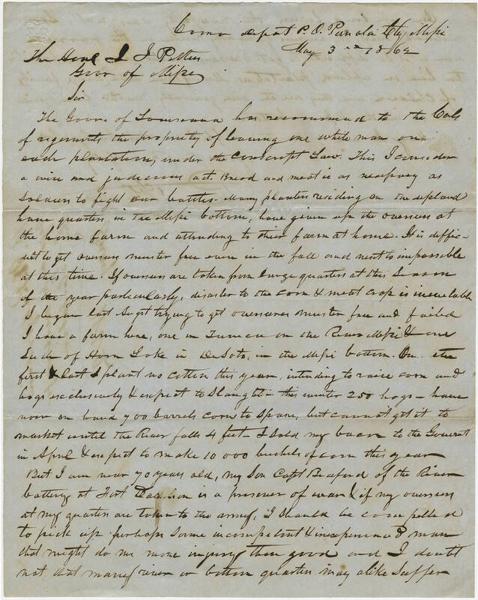 Como Depot P.O. Panola Cty, Missi
May 3rd 1862
The Honl J J Pettus
Govr of Missi
Sir
The Govr of Louisiana has recommended to the Cols
of regements the propriety of leaving one white man on
each plantation, under the Conscript Law. This I consider
a wise and judicious act. Bread and meat is as necessary as
soldiers to fight our battles. Many planters residing on the upland
have quarters in the Missi bottom, have given up the overseers at
the home farm and attending to their farm at home. It is diffi-
cult to get overseers muster free even in the fall and next to impossible
at this time. If overseers are taken from large quarters at this season
of the year particularly, disaster to the corn & meat crop is inevitable
I began last Sept trying to get overseers muster free and failed
I have a farm here, one in Tunica on the River Missi & one
South of Horn Lake in De Soto, in the Missi bottom. On the
first & last I plant no cotton this year, intending to raise corn and
hogs exclusively & expect to slaughter this winter 250 hogs - have
now on hand 700 barrels corn to spare, but cannot get it to
market until the River falls 4 feet - I sold my bacon to the Governt
in April & expect to make 10 000 bushels of corn this year
But I am near 70 years old, my Son Capt of the River
battery at Fort is a prisoner of war & if my overseers
at my quarter are taken to the army, I should be compelled
to pick up perhaps some incompetent & inexperienced man
that might do me more injury than good and I doubt
not that many river or bottom quarters may alike suffer